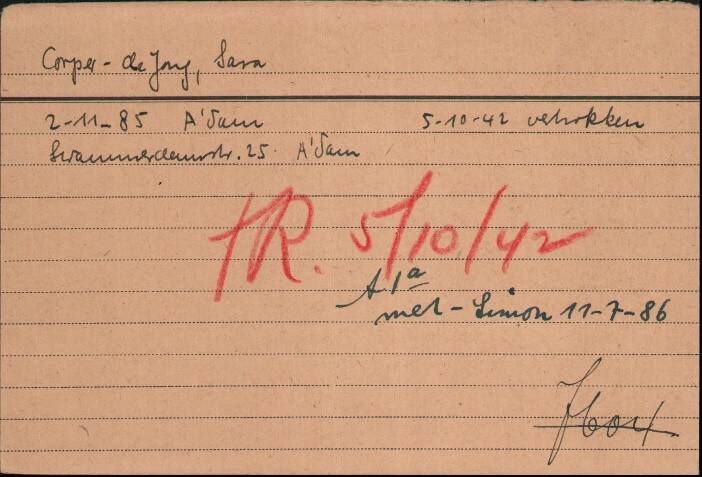 Corper - de Jong, Sara
2-11-85 A'dam 5-10-42 vertrokken
Swammerdamstr. 25 A'dam
TR. 5/10/42
A 1a
met - Simon 11-7-86